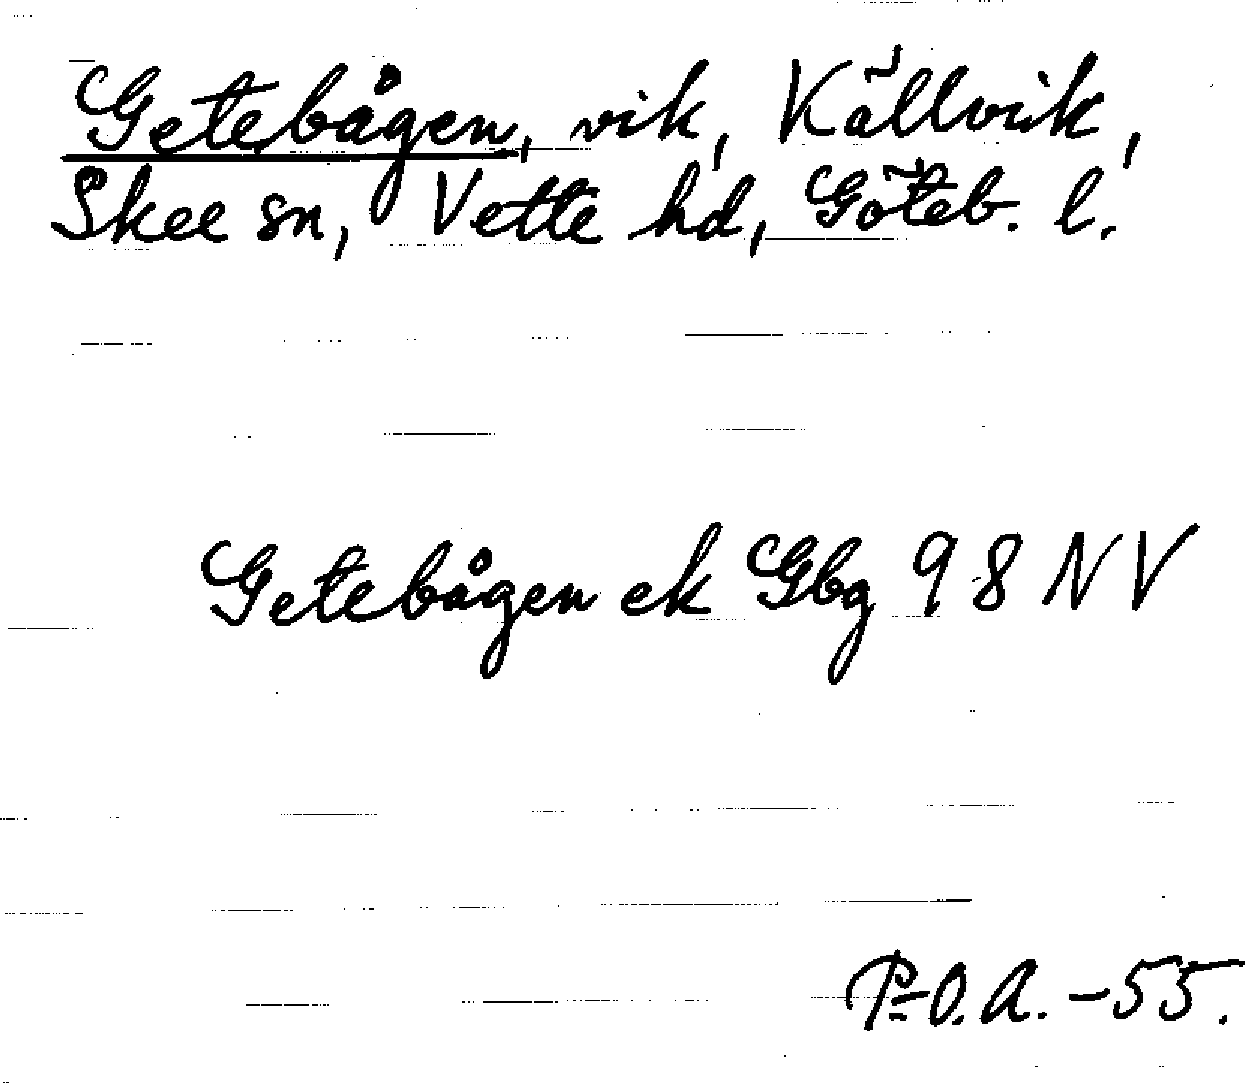 Getebågen, vik, Källvik,
Skee sn, Vette hd, Göteb. l.
Getebågen ek Gbg 98 NV
P-O.A. -55.